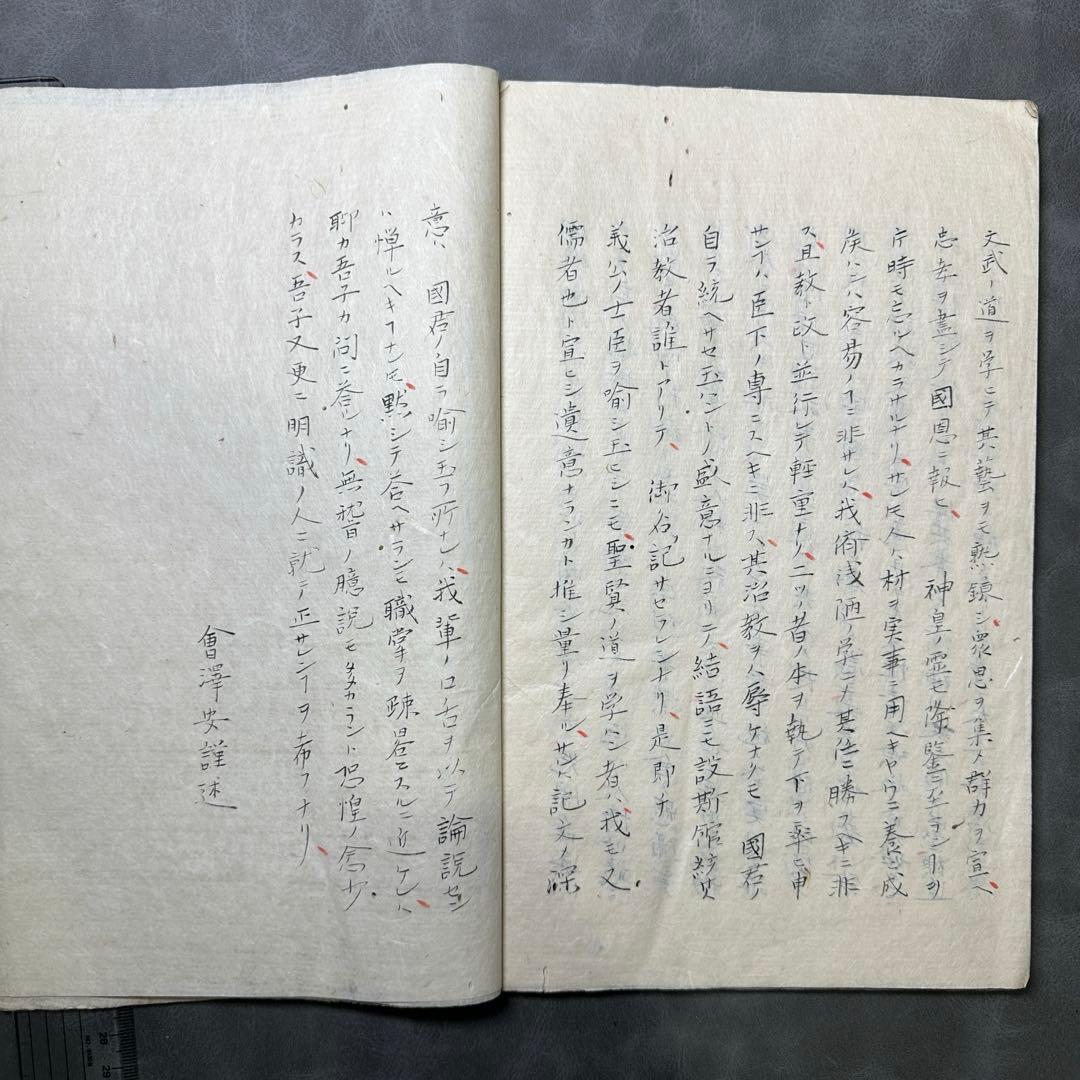 文武ノ道ヲ学ヒテ其藝ヲモ熟錬シ衆思ヲ集メ群力ヲ宣ヘ
忠孝ヲ盡シテ國恩ニ報ヒ、神皇ノ霊モ降鑒シ玉ランヿヲ
片時モ忘ルヘカラサルナリ、サレ𪜈人ハ材ヲ実事ニ用ヘキヤウニ養ヒ成
サンハ容易ノヿニ非サレハ、我術浅陋ノ学ニメ其任ニ勝フヘキニ非
ス、且教ト政ト並行シテ軽重ナリ、二ツノ者ノ本ヲ執テ下ヲ率ヒ申
サンヿハ臣下ノ専ニスヘキニ非ス、其治教ヲハ辱ケナクモ 國君ノ
自ラ統ヘサセ玉ハントノ盛意ナルニヨリテ、結語ニモ設斯館統其
治教者誰トアリテ、御名ヲ記サセラレシナリ、是即チ
義公ノ士臣ヲ喩シ玉ヒシニモ、聖賢ノ道ヲ学ハン者ハ、我モ又
儒者也ト宣ヒシ遺意ナランカト推シ量リ奉ル、サレハ記文ノ深
意ハ 國君ノ自ラ喩シ玉フ所ナレハ、我輩ノ口舌ヲ以テ論説セン
ハ憚ルヘキヿナレ𪜈、黙シテ答ヘサランモ職掌ヲ疎畧ニスルニ近ケレハ、
聊カ吾子カ問ニ答シナリ、無稽ノ臆説モ多カラント恐惶ノ念少
カラス、吾子又更ニ明識ノ人ニ就テ正サレンヿヲ希フナリ、
會澤安謹述